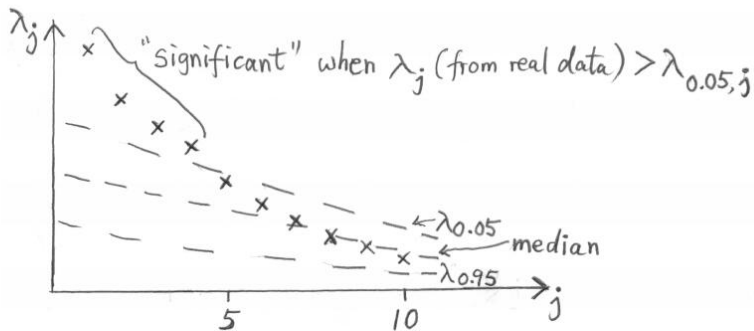 λj
"significant" when λj (from real data) > λ0.05, j
λ0.05
median
λ0.95
j
5
10